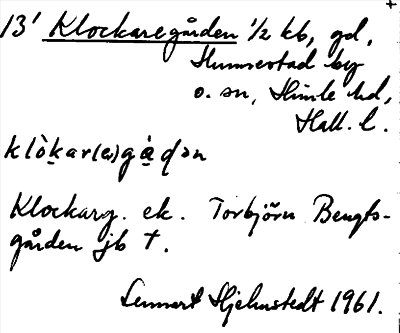 +
13' Klockaregården 1/2 kb, gd,
Hunnestad by
o. sn, Himle hd,
Hall. l.
klò̱kar(a)gå̱̀ḍən
Klockarg. ek. Torbjörn Bengts-
gården jb †.
Lennart Hjelmstedt 1961.